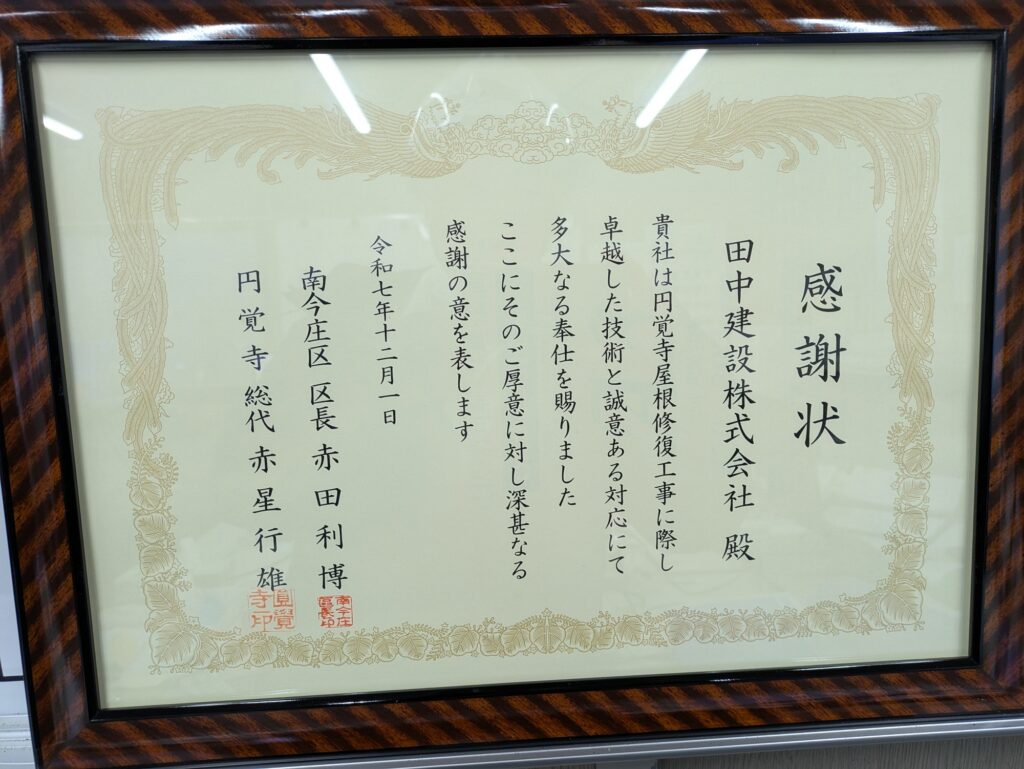 感謝状
田中建設株式会社 殿
貴社は円覚寺屋根修復工事に際し
卓越した技術と誠意ある対応にて
多大なる奉仕を賜りました
ここにそのご厚意に対し深甚なる
感謝の意を表します
令和七年十二月一日
南今庄区 区長 赤田利博
南今庄
区長印
円覚寺 総代 赤星行雄
圓覺
寺印